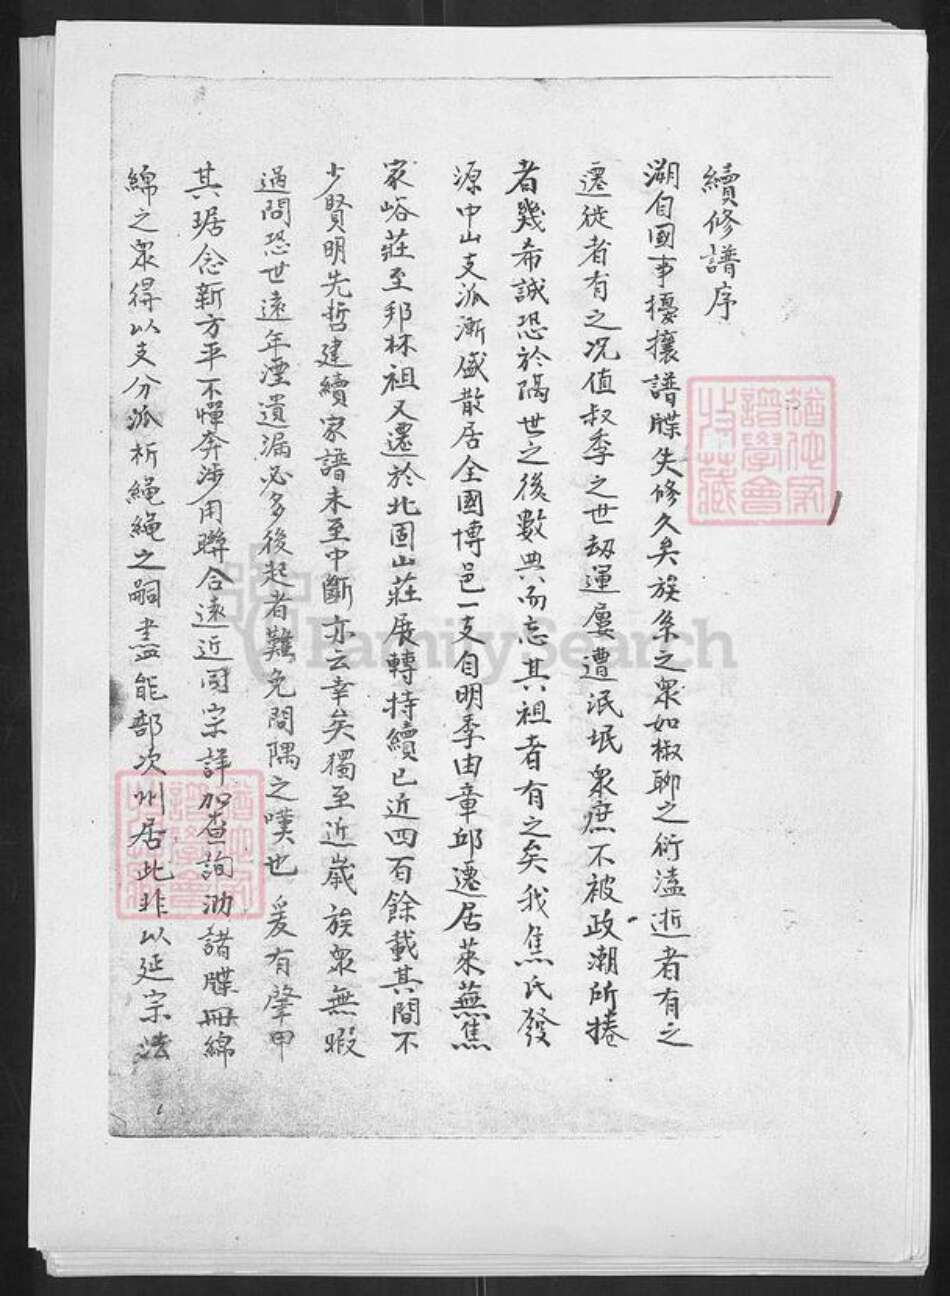 續修譜序
溯自國事擾攘譜牒失修久矣族系之眾如椒聊之衍溘逝者有之
遷徙者有之况值叔季之世劫運屢遭泯泯眾庶不被政潮所捲
者幾希誠恐於隔世之後數典而忘其祖者有之矣我焦氏發
源中山支派漸盛散居全國博邑一支自明季由章邱遷居萊蕪焦
家峪莊至邦林祖又遷於北固山莊展轉持續已近四百餘載其間不
少賢明先哲建續家譜未至中斷亦云幸矣獨至近歲族眾無暇
過問恐世遠年湮遺漏必多後起者難免閒隅之嘆也爰有肇甲
其琚念新方平不憚奔涉用聯合遠近同宗詳加查詢沏諸牒冊綿
綿之眾得以支分派析繩繩之嗣盡能部次州居此非以延宗法
猶他家譜學會收藏
猶他家譜學會收藏
FamilySearch